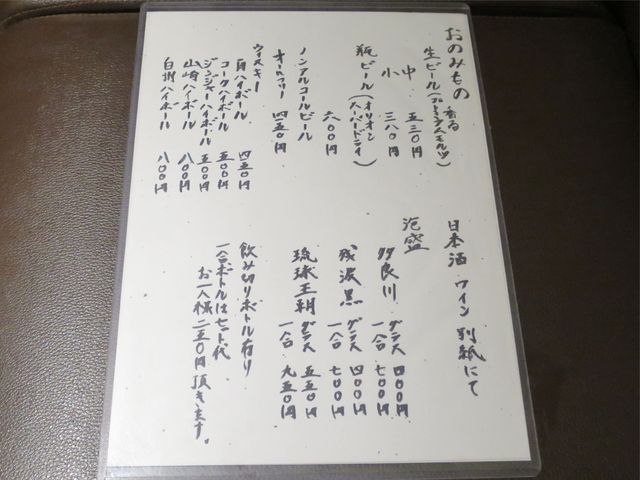 おのみもの
生ビール(香るプレミアムモルツ)
中 五三〇円
小 三八〇円
瓶ビール(オリオン スーパードライ)
六〇〇円
ノンアルコールビール
オールフリー 四五〇円
ウィスキー
角ハイボール 四五〇円
コークハイボール 五〇〇円
ジンジャーハイボール 五〇〇円
山崎ハイボール 八〇〇円
白州ハイボール 八〇〇円
日本酒 ワイン 別紙にて
泡盛
多良川 グラス 四〇〇円
一合 七〇〇円
残波黒 グラス 四〇〇円
一合 七〇〇円
琉球王朝 グラス 五五〇円
一合 九五〇円
飲み切りボトル有り
一合ボトルはセット代
お一人様二五〇円頂きます。